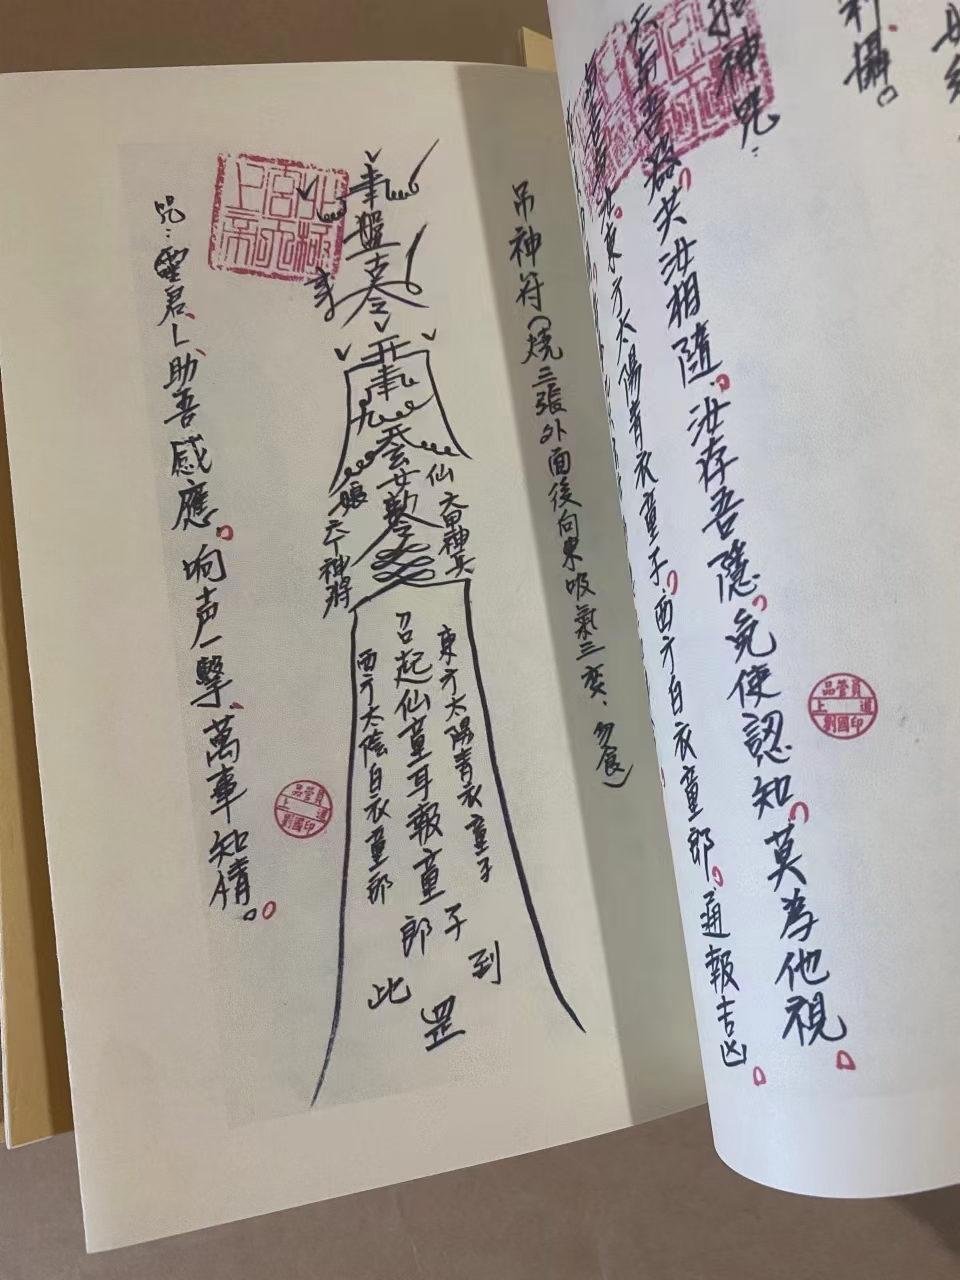 利攝。
神咒：
天汝相隨。汝存吾隱。氣使認知。莫為他視。
東方太陽青衣童子。西方白衣童郎。通報吉凶。
品管員
道
上
劉國印
吊神符（燒三張外面後向東吸氣三变、勿食）
北極
玄
上帝
盤古令
九
玄女勅令
仙
娘
六甲神兵
六丁神將
東方太陽青衣童子
召起仙童耳報童
子
郎
西方太陰白衣童郎
到
此
罡
咒：靈君上助吾感應。响声一擊、萬事知情。
品管員
道
上
劉國印